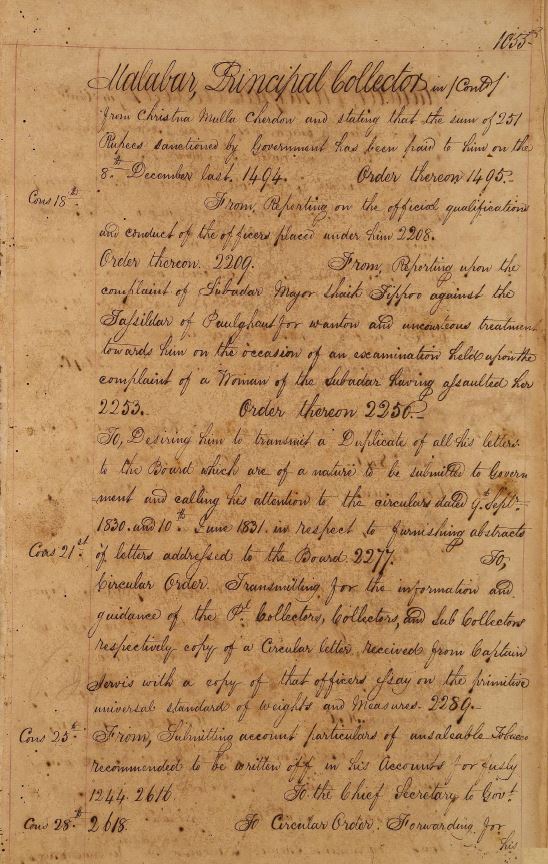 1055
Malabar, Principal Collector in /Contd/
from Christna Mulla Cherdon and stating that the sum of 251
Rupees sanctioned by Government has been paid to him on the
8th December last. 1494. Order thereon 1495.
Cons 18th
From, Reporting on the official qualifications
and conduct of the officers placed under him 2208.
Order thereon. 2209. From, Reporting upon the
complaint of Subadar Major Shaik Tippoo against the
Tassildar of Paulghaut for wanton and uncourteous treatment
towards him on the occasion of an examination held upon the
complaint of a Woman of the Subadar having assaulted her
2253. Order thereon 2256.
To, Desiring him to transmit a Duplicate of all his letters
to the Board which are of a nature to be submitted to Govern
-ment and calling his attention to the circulars dated 9th Septr
1830 and 10th June 1831. in respect to furnishing abstracts
Cons 21st of letters addressed to the Board. 2277. To,
Circular Order. Transmitting for the information and
guidance of the Pl Collectors, Collectors, and Sub Collectors
respectively copy of a Circular letter received from Captain
Jervis with a copy of that officers Essay on the primitive
universal standard of weights and Measures. 2289.
Cons 25th From, Submitting account particulars of unsaleable Tobacco
recommended to be written off in his Accounts for fusly
1244. 2616 To the Chief Secretary to Govt.
Cons 28th 2618. To Circular Order. Forwarding for
his